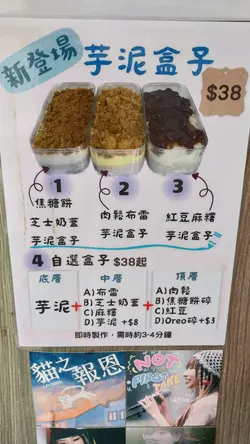 新登場
芋泥盒子
$38
1
焦糖餅
芝士奶蓋
芋泥盒子
2
肉鬆布雷
芋泥盒子
3
紅豆麻糬
芋泥盒子
4 自選盒子 $38起
底層
芋泥
+
中層
A)布雷
B)芝士奶蓋
C)麻糬
D)芋泥 +$8
+
頂層
A)肉鬆
B)焦糖餅碎
C)紅豆
D)Oreo碎+$3
即時製作，需時約3-4分鐘
貓之報恩
NOT